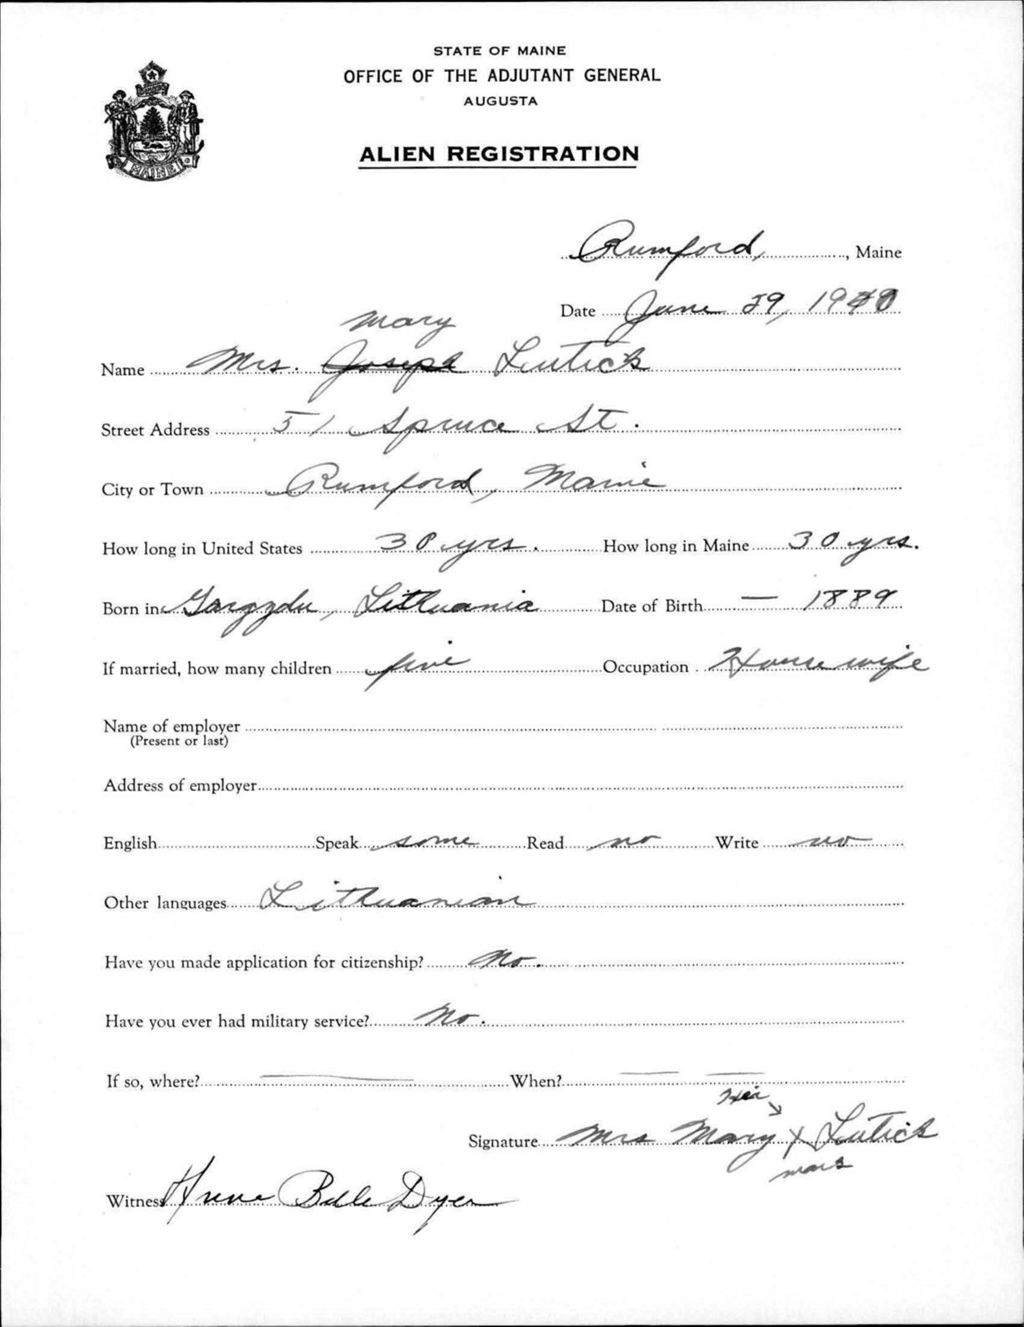 STATE OF MAINE
OFFICE OF THE ADJUTANT GENERAL
AUGUSTA
MAINE
ALIEN REGISTRATION
Rumford, , Maine
Date June 29, 1940
Mary
Name Mrs. Joseph Lutick
Street Address 51 Spruce St.
City or Town Rumford, Maine
How long in United States 30 yrs. How long in Maine 30 yrs.
Born in Gargzdu, Lithuania Date of Birth — 1889
If married, how many children five Occupation Housewife
Name of employer
(Present or last)
Address of employer
English Speak some Read no Write no
Other languages Lithuanian
Have you made application for citizenship? No.
Have you ever had military service? No.
If so, where? — When? — —
Her
Signature Mrs Mary X Lutick
mark
Witness Anna Belle Dyer